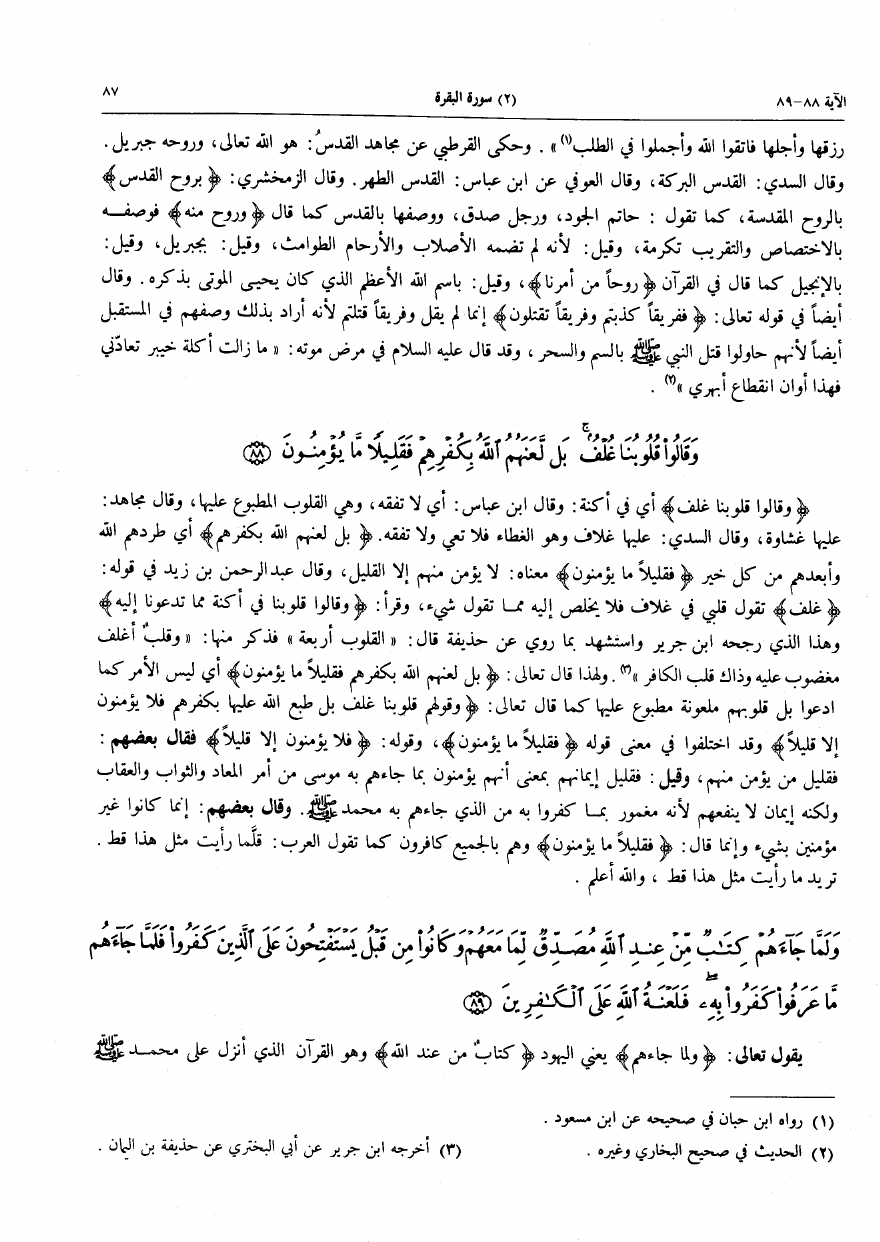 الآية ٨٨-٨٩
(٢) سورة البقرة
٨٧
رزقها وأجلها فاتقوا الله وأجملوا في الطلب(١)» . وحكى القرطبي عن مجاهد القدسُ: هو الله تعالى، وروحه جبريل.
وقال السدي: القدس البركة، وقال العوفي عن ابن عباس: القدس الطهر. وقال الزمخشري: ﴿بروح القدس﴾
بالروح المقدسة، كما تقول : حاتم الجود، ورجل صدق، ووصفها بالقدس كما قال ﴿وروح منه﴾ فوصفـه
بالاختصاص والتقريب تكرمة، وقيل: لأنه لم تضمه الأصلاب والأرحام الطوامث، وقيل: بجبريل، وقيل:
بالإنجيل كما قال في القرآن ﴿روحاً من أمرنا﴾، وقيل: باسم الله الأعظم الذي كان يحيـى الموتى بذكره. وقال
أيضاً في قوله تعالى: ﴿ففريقاً كذبتم وفريقاً تقتلون﴾ إنما لم يقل وفريقاً قتلتم لأنه أراد بذلك وصفهم في المستقبل
أيضاً لأنهم حاولوا قتل النبي ﷺ بالسم والسحر، وقد قال عليه السلام في مرض موته: «ما زالت أكلة خيبر تعادّني
فهذا أوان انقطاع أبهري»(٢) .
وَقَالُوا۟ قُلُوبُنَا غُلْفٌۢ ۚ بَل لَّعَنَهُمُ ٱللَّهُ بِكُفْرِهِمْ فَقَلِيلًا مَّا يُؤْمِنُونَ ﴿٨٨﴾
﴿وقالوا قلوبنا غلف﴾ أي في أكنة: وقال ابن عباس: أي لا تفقه، وهي القلوب المطبوع عليها، وقال مجاهد:
عليها غشاوة، وقال السدي: عليها غلاف وهو الغطاء فلا تعي ولا تفقه. ﴿بل لعنهم الله بكفرهم﴾ أي طردهم الله
وأبعدهم من كل خير ﴿فقليلاً ما يؤمنون﴾ معناه: لا يؤمن منهم إلا القليل، وقال عبدالرحمن بن زيد في قوله:
﴿غلف﴾ تقول قلبي في غلاف فلا يخلص إليه ممـا تقول شيء، وقرأ: ﴿وقالوا قلوبنا في أكنة مما تدعونا إليه﴾
وهذا الذي رجحه ابن جرير واستشهد بما روي عن حذيفة قال: «القلوب أربعة» فذكر منها: «وقلبٌ أغلف
مغضوب عليه وذاك قلب الكافر»(٣). ولهذا قال تعالى: ﴿بل لعنهم الله بكفرهم فقليلاً ما يؤمنون﴾ أي ليس الأمر كما
ادعوا بل قلوبهم ملعونة مطبوع عليها كما قال تعالى: ﴿وقولهم قلوبنا غلف بل طبع الله عليها بكفرهم فلا يؤمنون
إلا قليلاً﴾ وقد اختلفوا في معنى قوله ﴿فقليلاً ما يؤمنون﴾، وقوله: ﴿فلا يؤمنون إلا قليلاً﴾ فقال بعضهم :
فقليل من يؤمن منهم، وقيل: فقليل إيمانهم بمعنى أنهم يؤمنون بما جاءهم به موسى من أمر المعاد والثواب والعقاب
ولكنه إيمان لا ينفعهم لأنه مغمور بمـا كفروا به من الذي جاءهم به محمد ﷺ. وقال بعضهم: إنما كانوا غير
مؤمنين بشيء وإنما قال: ﴿فقليلاً ما يؤمنون﴾ وهم بالجميع كافرون كما تقول العرب: قلَّما رأيت مثل هذا قط .
تريد ما رأيت مثل هذا قط ، والله أعلم .
وَلَمَّا جَآءَهُمْ كِتَـٰبٌ مِّنْ عِندِ ٱللَّهِ مُصَدِّقٌ لِّمَا مَعَهُمْ وَكَانُوا۟ مِن قَبْلُ يَسْتَفْتِحُونَ عَلَى ٱلَّذِينَ كَفَرُوا۟ فَلَمَّا جَآءَهُم
مَّا عَرَفُوا۟ كَفَرُوا۟ بِهِۦ ۚ فَلَعْنَةُ ٱللَّهِ عَلَى ٱلْكَـٰفِرِينَ ﴿٨٩﴾
يقول تعالى: ﴿ولما جاءهم﴾ يعني اليهود ﴿كتابٌ من عند الله﴾ وهو القرآن الذي أنزل على محمـد ﷺ
(١) رواه ابن حبان في صحيحه عن ابن مسعود .
(٢) الحديث في صحيح البخاري وغيره .
(٣) أخرجه ابن جرير عن أبي البختري عن حذيفة بن اليمان .